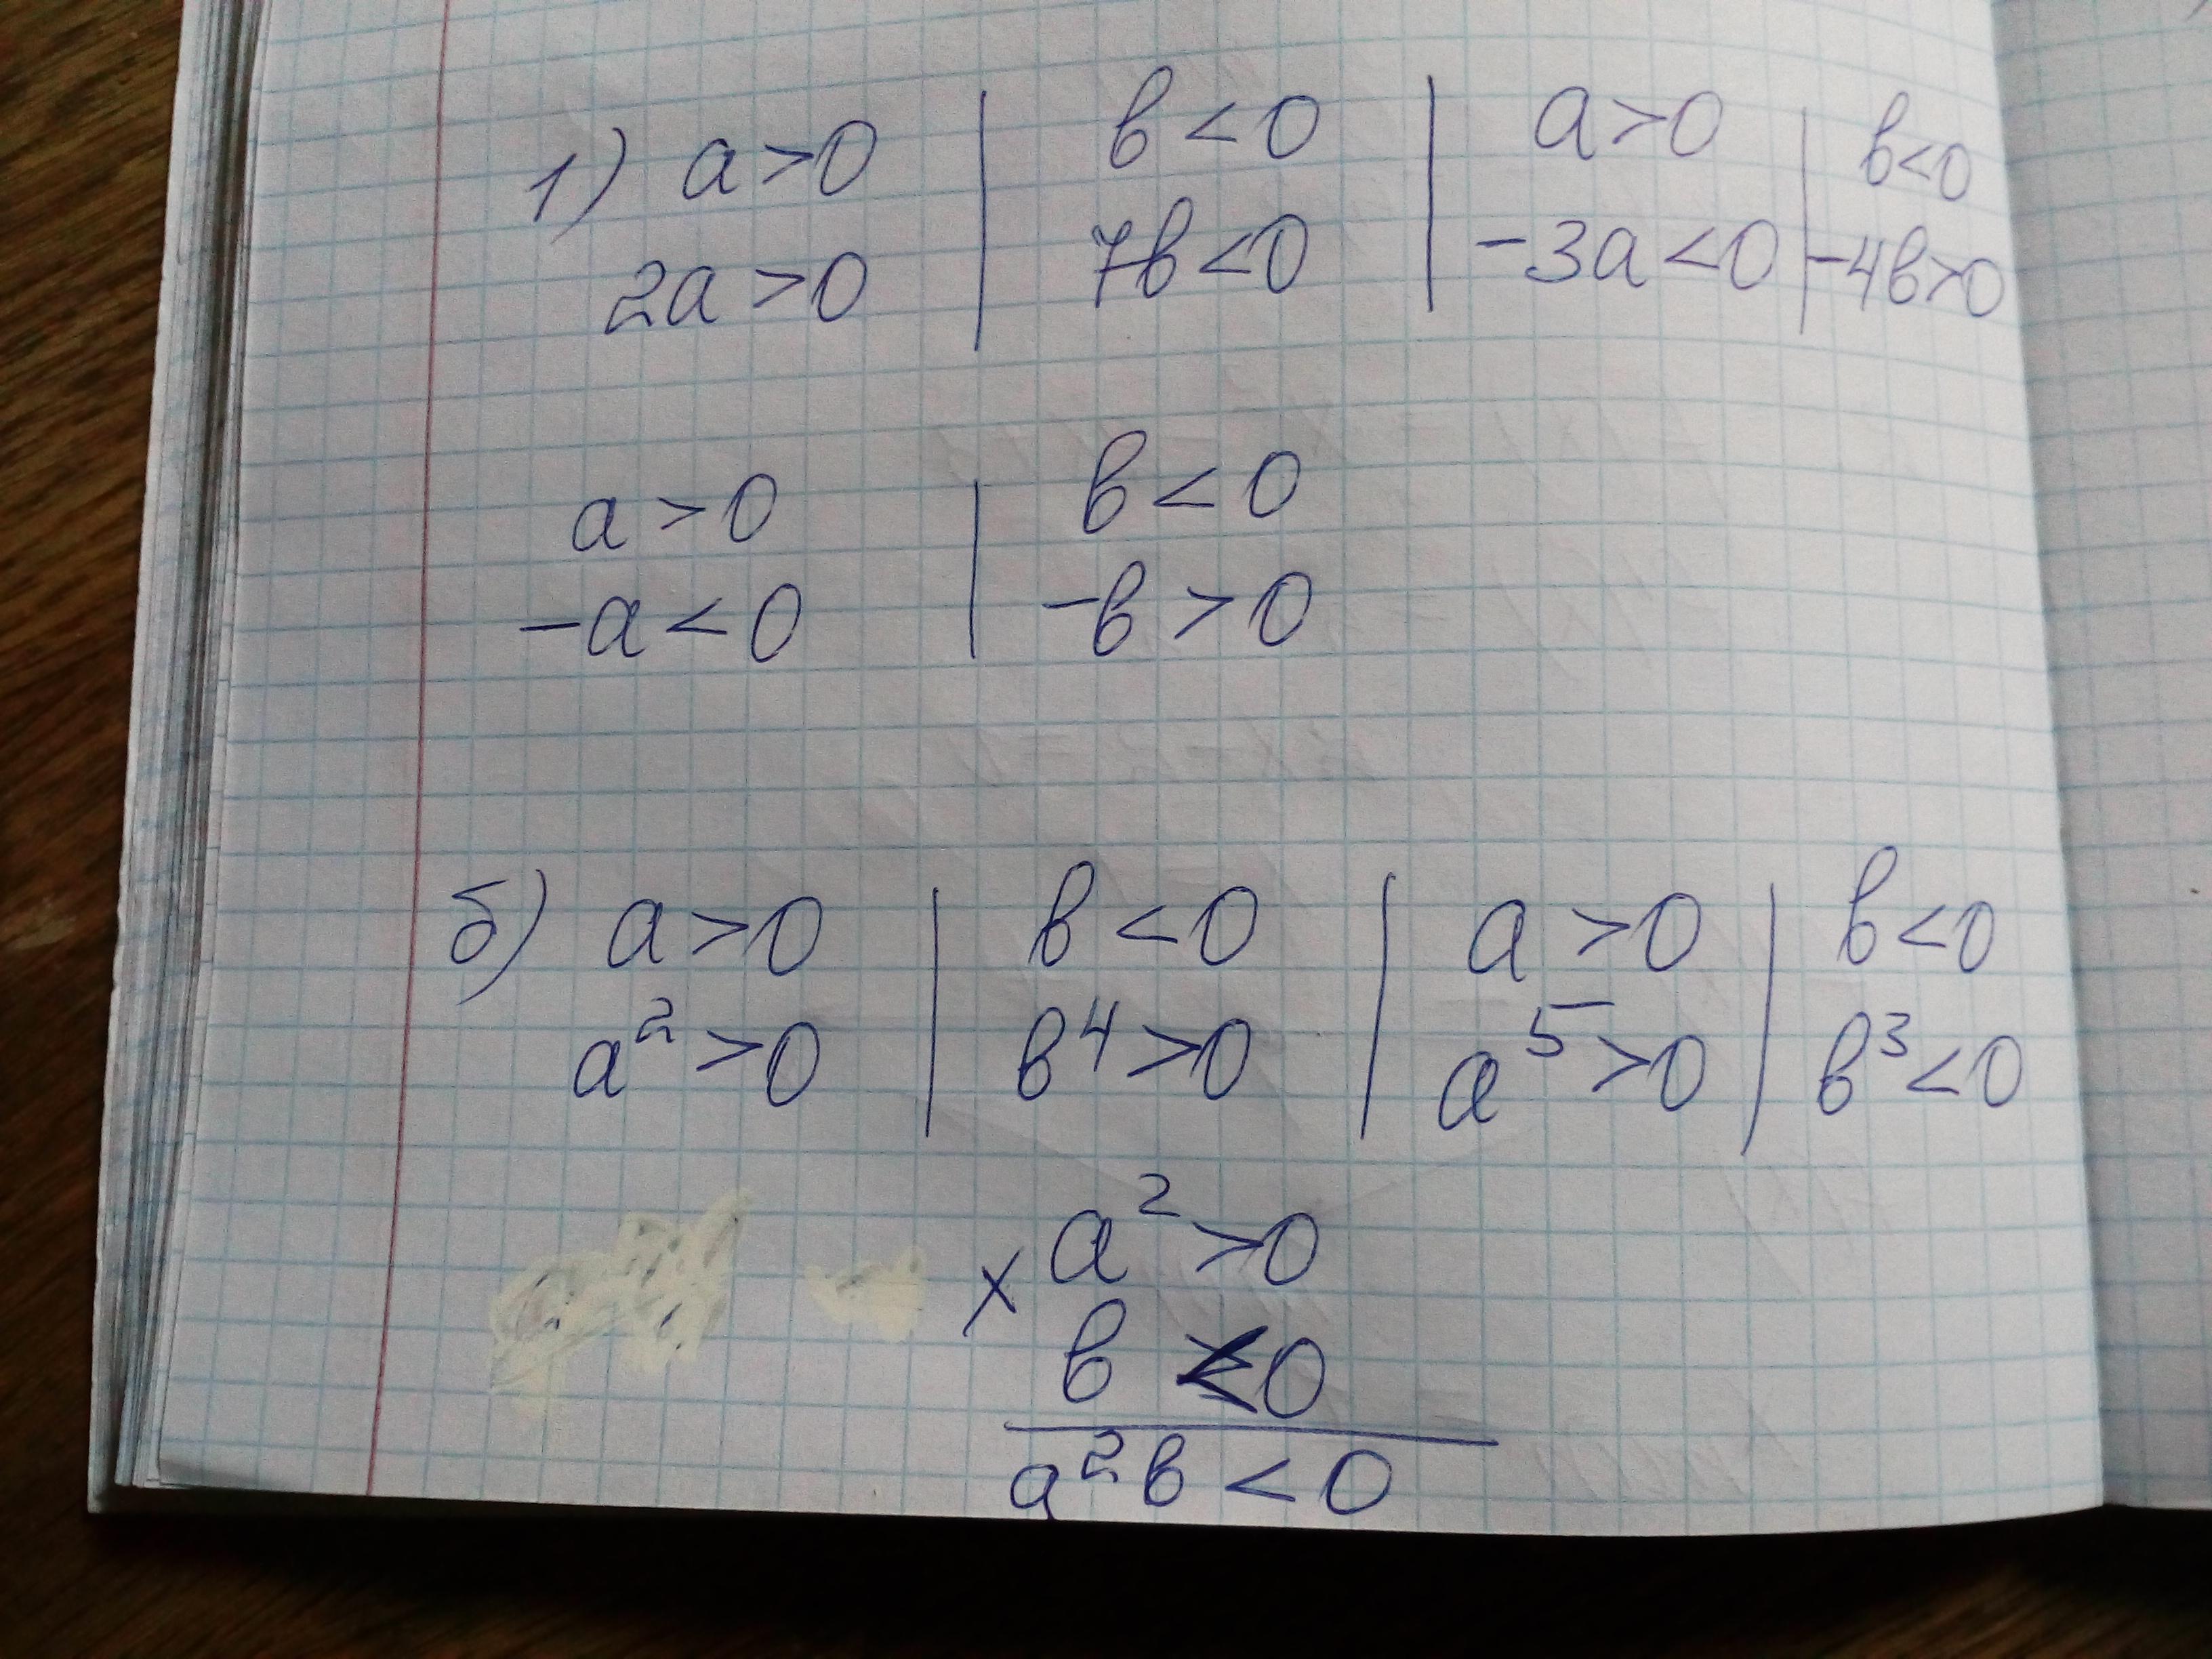 1) a > 0 | в < 0 | a > 0 | в < 0
2a > 0 | 7в < 0 | -3a < 0 | -4в > 0
a > 0 | в < 0
-a < 0 | -в > 0
б) a > 0 | в < 0 | a > 0 | в < 0
a² > 0 | в⁴ > 0 | a⁵ > 0 | в³ < 0
a² > 0
×
в < 0
a²в < 0